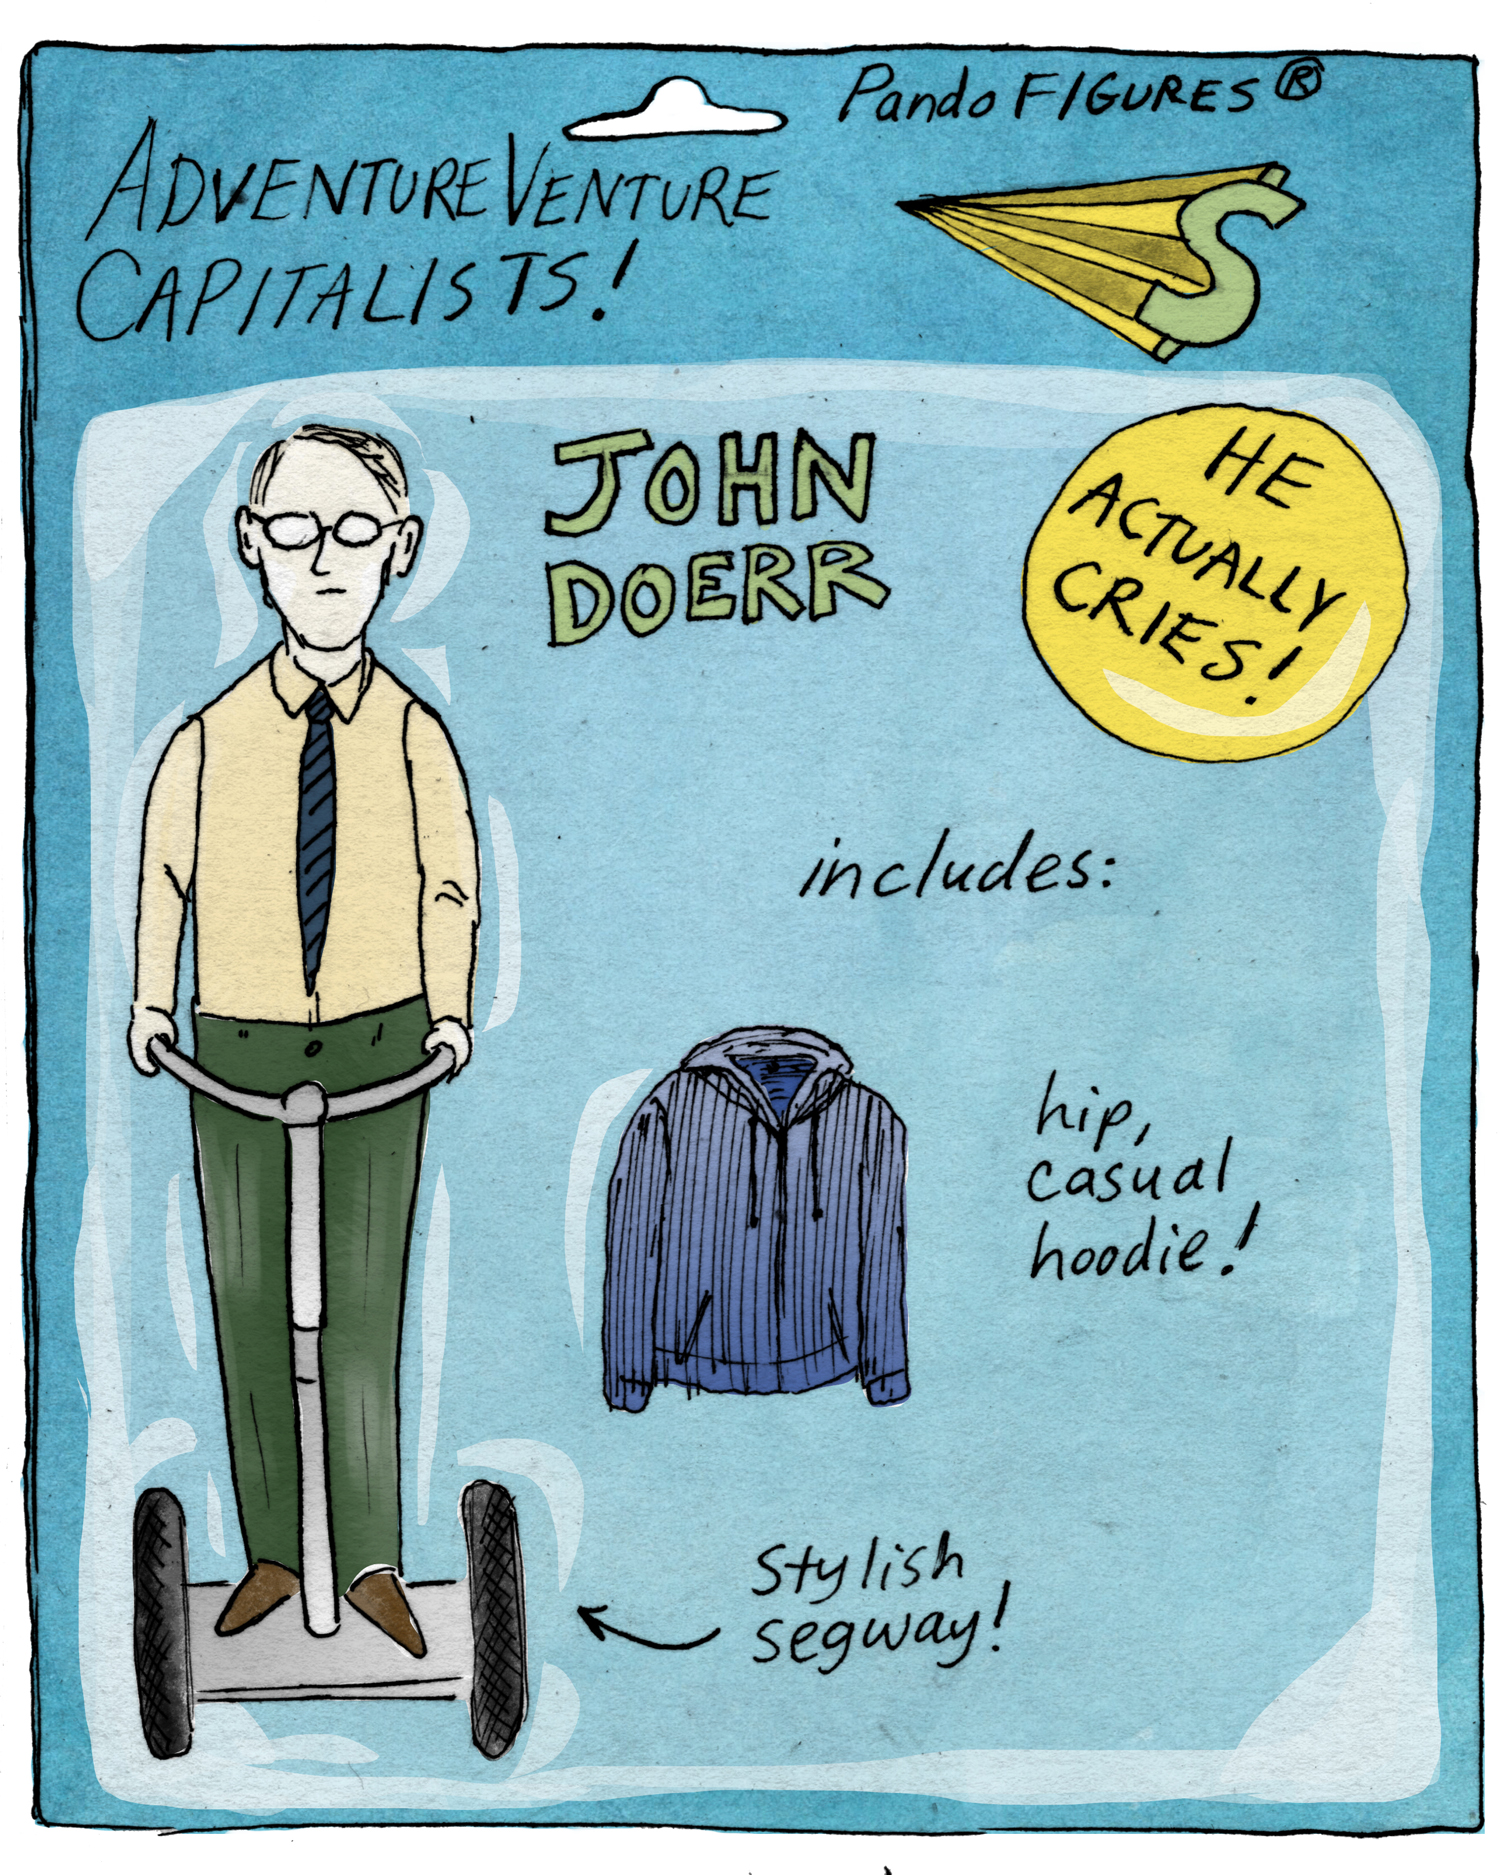 Pando FIGURES®
ADVENTURE VENTURE
CAPITALISTS!
S
JOHN
DOERR
HE
ACTUALLY
CRIES!
includes:
hip,
casual
hoodie!
Stylish
segway!